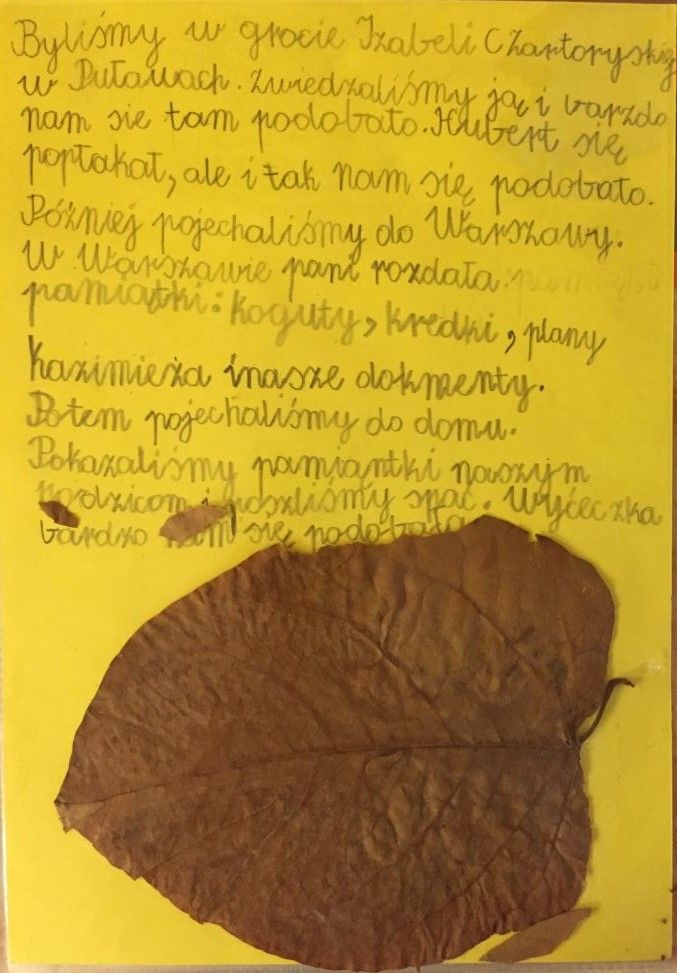 Byliśmy w grocie Izabeli Czartoryskiej
w Puławach. Zwiedzaliśmy ją i barzdo
nam sie tam podobało. Hubert się
popłakał, ale i tak nam się podobało.
Później pojechaliśmy do Warszawy.
W Warszawie pani rozdała
pamiątki: koguty, kredki, plany
Kazimieża i nasze dokmenty.
Potem pojechaliśmy do domu.
Pokazaliśmy pamiąntki naszym
rodzicom i poszliśmy spać. Wyćeczka
bardzo nam się podobała